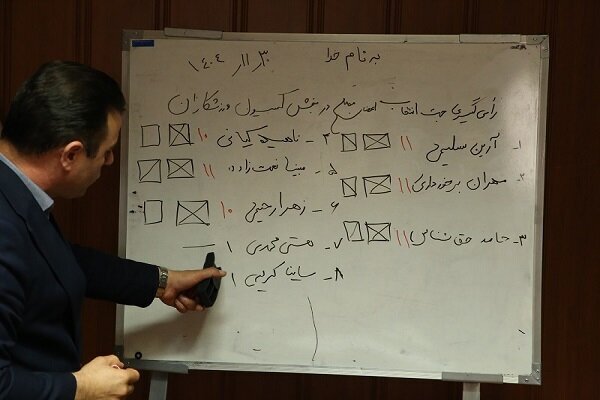 به نام خدا
۱۴۰۴ ،۱۱، ۳۰
رأی گیری جهت انتخاب اعضای منتخب در بخش کمیسیون ورزشکاران
۱- آرین سلیمی ۱۱
۲- مهران برخورداری ۱۱
۳- حامد حق شناس ۱۱
۴- ناهید کیانی ۱۰
۵- مبینا نعمت زاده ۱۱
۶- زهرا رحیمی ۱۰
۷- هستی محمدی ۱ —
۸- ساینا کریمی ۱